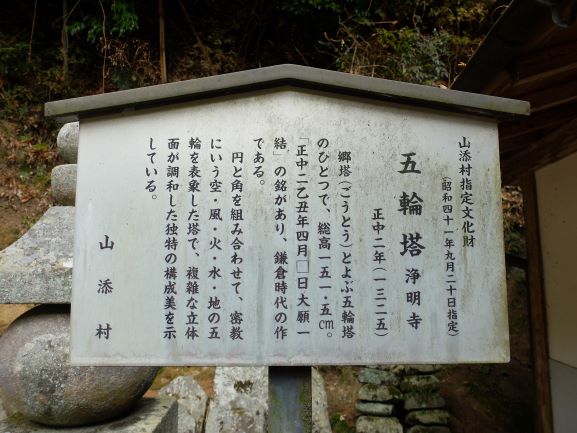 山添村指定文化財
(昭和四十一年九月二十日指定)
五輪塔 浄明寺
正中二年(一三二五)
郷塔(ごうとう)とよぶ五輪塔
のひとつで、総高一五一・五cm。
「正中二乙丑年四月□日大願一
結」の銘があり、鎌倉時代の作
である。
円と角を組み合わせて、密教
にいう空・風・火・水・地の五
輪を表象した塔で、複雑な立体
面が調和した独特の構成美を示
している。
山添村